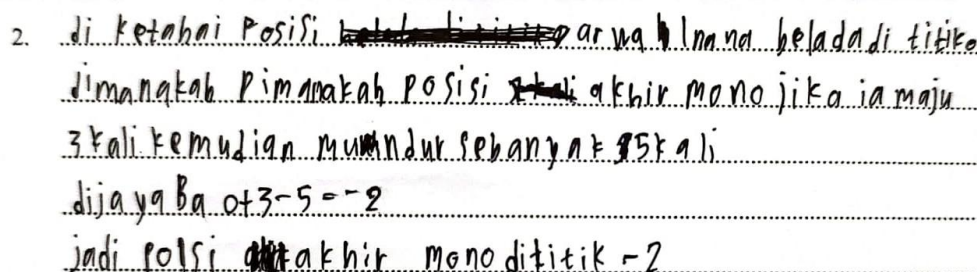 2. di ketahai Posisi arwah Inana beladadi titik o
dimanakah Dimanakah posisi akhir mono jika ia maju
3 kali kemudian mundur sebanyak 5 kali
dijayaBa 0+3-5=-2
jadi polsi akhir mono dititik -2